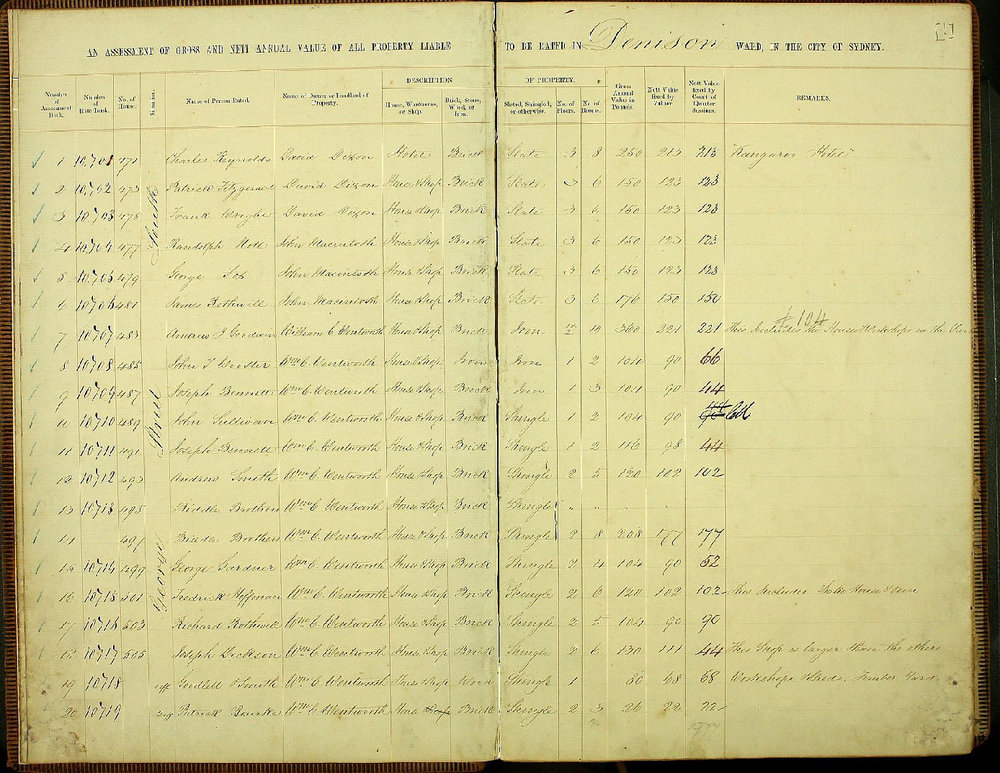 AN ASSESSMENT OF GROSS AND NETT ANNUAL VALUE OF ALL PROPERTY LIABLE TO BE RATED IN Denison WARD, IN THE CITY OF SYDNEY.
Number of Assessment Book. Number of Rate Book. No. of House. Situation. Name of Person Rated. Name of Owner or Landlord of Property. DESCRIPTION OF PROPERTY. House, Warehouse, or Shop. Brick, Stone, Wood, or Iron. Slated, Shingled, or otherwise. No. of Floors. No. of Rooms. Gross Annual Value in Pounds. Nett Value fixed by Valuer Nett Value fixed by Court of Quarter Sessions. REMARKS.
George Street South
1 10,701 471 Charles Reynolds David Dixon Hotel Brick Slate 3 8 250 213 213 "Kangaroo Hotel"
2 10,702 473 Patrick Fitzgerald David Dixon House & Shop Brick Slate 3 6 150 123 123
3 10,703 475 Frank Wright David Dixon House & Shop Brick Slate 3 6 150 123 123
4 10,704 477 Randolph Nott John Macintosh House & Shop Brick Slate 3 6 150 123 123
5 10,705 479 George Fox John Macintosh House & Shop Brick Slate 3 6 150 123 123
6 10,706 481 James Bothwell John Macintosh House & Shop Brick Slate 3 6 176 150 150
# 104
7 10707 483 William C Wentworth House & Shop Brick Iron 19 260 221 221 This includes the in the
8 10708 485 John T Wm C. Wentworth House & Shop Iron Iron 1 2 104 90 66
9 10709 487 Joseph Bennett Wm C. Wentworth House & Shop Brick Iron 1 3 104 90 44
10 10710 489 John Sullivan Wm C. Wentworth House & Shop Brick Shingle 1 2 104 90
11 10711 491 Joseph Bennett Wm C. Wentworth House & Shop Brick Shingle 1 2 116 98 44
12 10712 493 Andrew Smith Wm C. Wentworth House & Shop Brick Shingle 2 5 120 102 102
13 10713 495 Riddle Brothers Wm C. Wentworth House & Shop Brick Shingle
14 497 Riddle Brothers Wm C. Wentworth House & Shop Brick Shingle 2 8 208 177 177
15 10714 499 George Gardner Wm C. Wentworth House & Shop Brick Shingle 2 4 104 90 52
16 10715 501 Fredrick Hoffman Wm C. Wentworth House & Shop Brick Shingle 2 6 120 102 102 This includes Bake House & Oven
17 10716 503 Richard Bothwell Wm C. Wentworth House & Shop Brick Shingle 2 5 104 90 90
18 10717 505 Joseph Dickson Wm C. Wentworth House & Shop Brick Shingle 2 6 130 111 44 This Shop is larger than the others
19 10718 off Smith Wm C. Wentworth House & Shop Wood Shingle 1 80 68 68 Workshops Sheds, Timber Yard
20 10719 Patrick Wm C. Wentworth House Brick Shingle 2 3 26 22 22